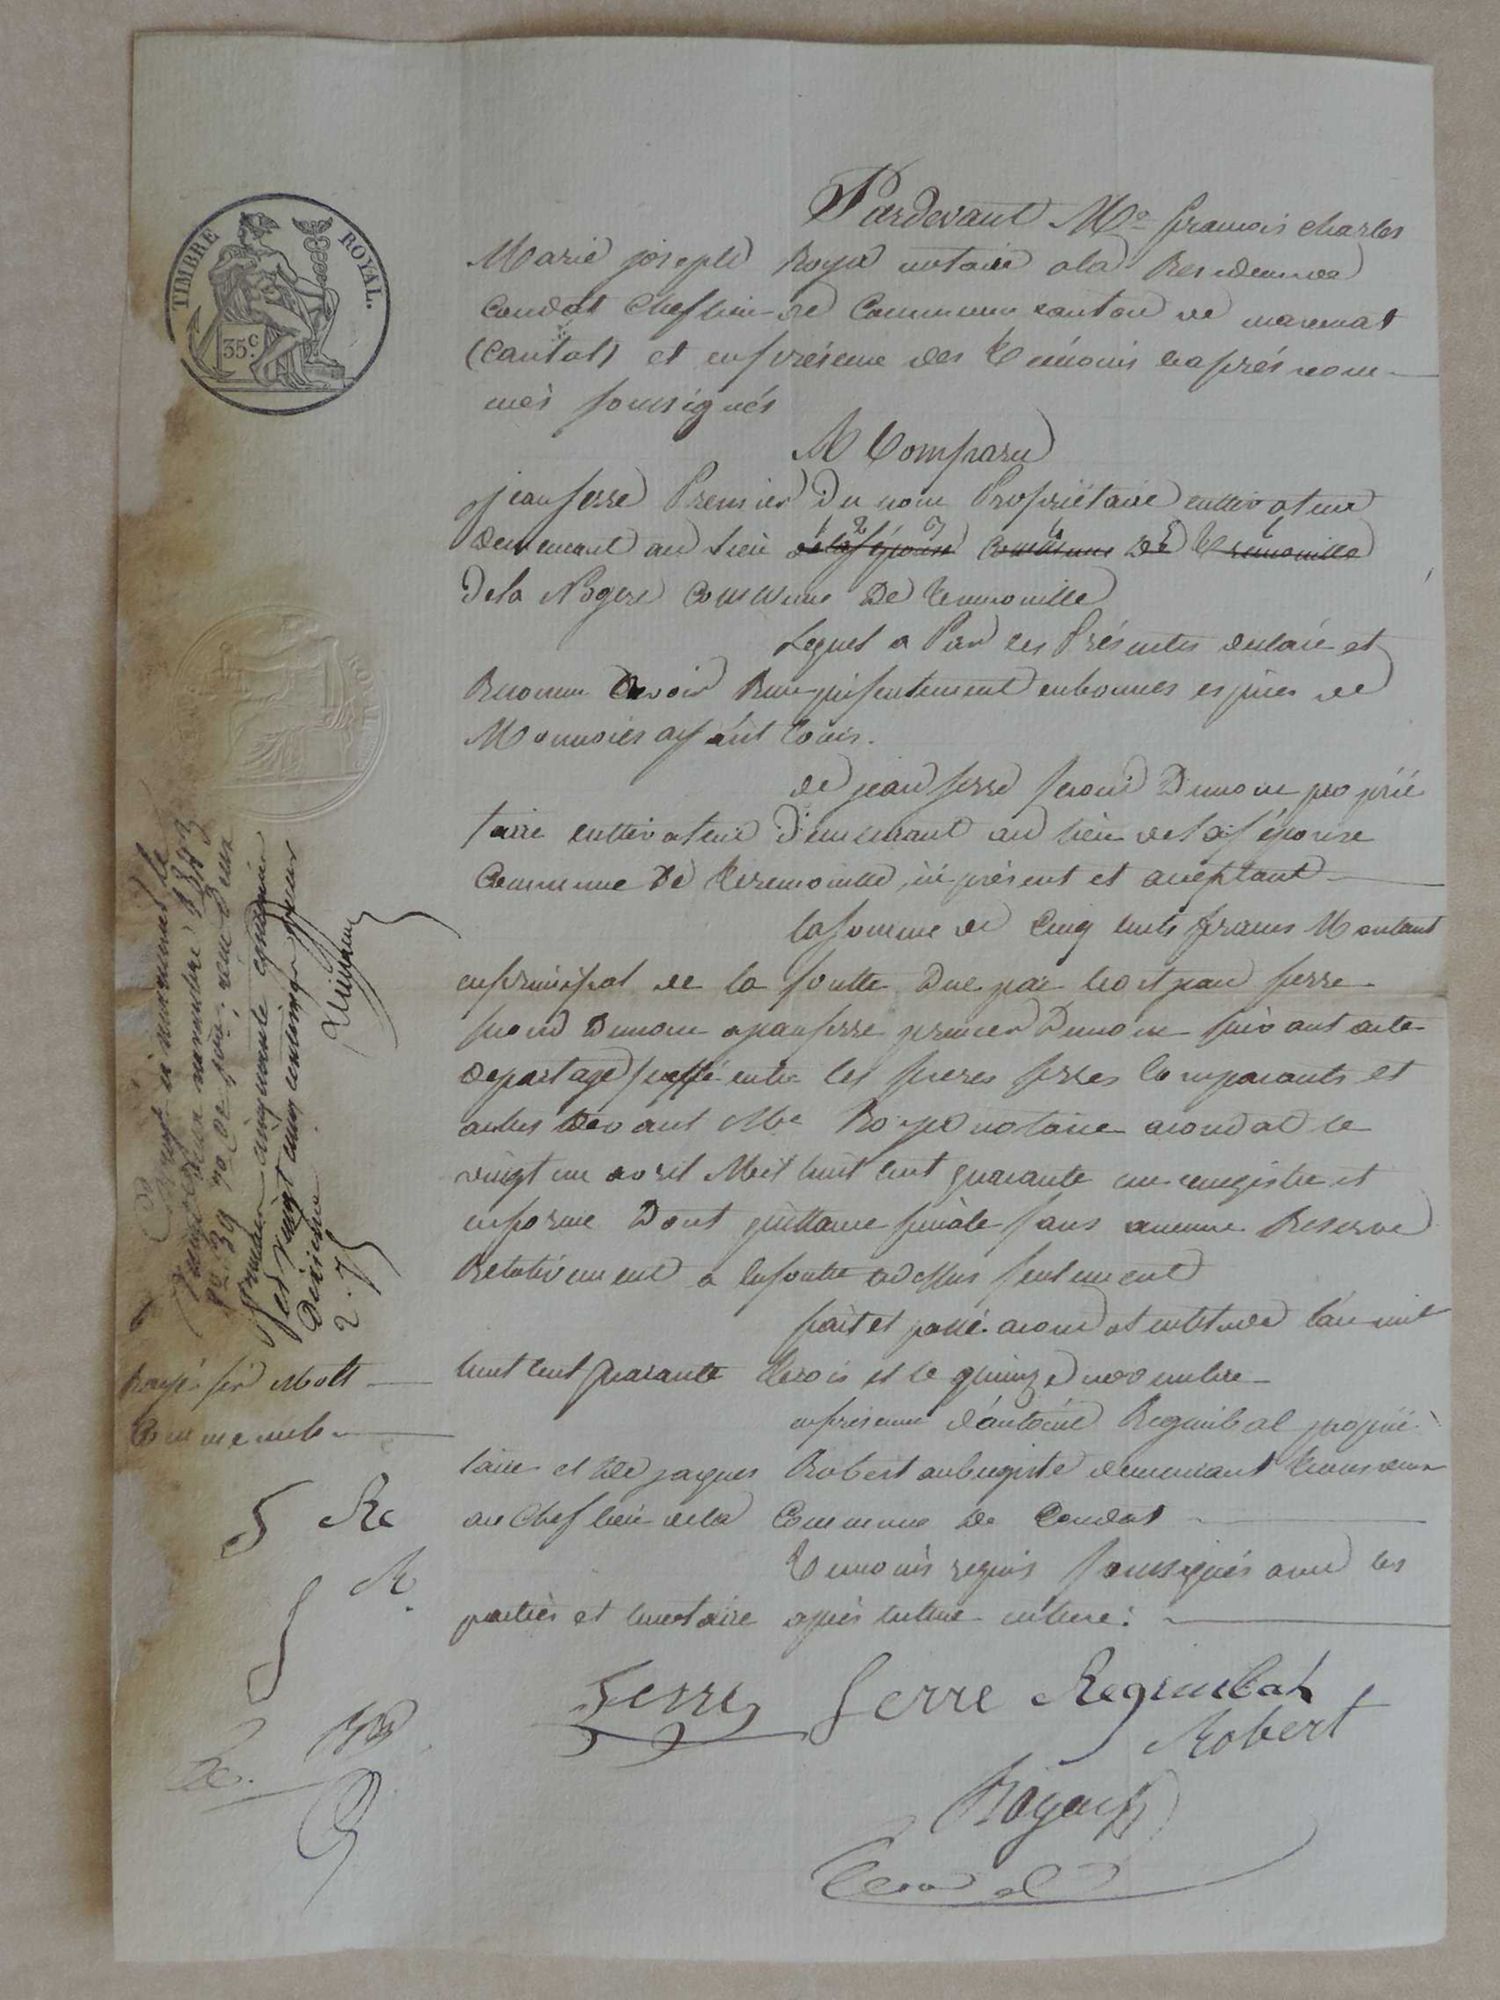 TIMBRE ROYAL.
35 c.
Pardevant Me francois charles
Marie joseph Royer notaire ala Residence de
Condat chef lieu de Commune canton de marcenat
(Cantal) et enprésence des temoins ciaprés nom-
més soussignés
A Comparu
jean serre Premier Du nom Propriétaire cultivateur
demeurant au lieu commune De tremouille
Dela Nogere commune De tremouille
Lequel a Par ces Présentes declaré et
Reconnu avoir Reçu présentement enbonnes espèces de
Monnoies ayant Cours.
de jean serre second Dunom proprié
taire cultivateur Demeurant au lieu dela
Commune De tremouille, ici présent et aceptant
la somme de Cinq cents francs Montant
enprincipal de la soulte Due par ledit jean serre
second Dunom ajeanserre premier Dunom suivant acte
departage passé entre les freres serres Comparants et
autres devant Me Royer notaire acondat le
vingt un avril Mil huit cent quarante un enregistré et
enforme Dont quittance finale sans aucune Reserve
Relativement a lasoulte adessus seulement
fait et passé acondat enletude l'an mil
huit cent quarante trois et le quinze novembre
enprésence d'antoine Regimbal proprié
taire et de jaques Robert aubergiste demeurant tous deux
au chef lieu dela Commune De Condat
temoins requis soussignés avec les
parties et lenotaire après lecture:
Serre Serre Regimbal
Robert
Royer
novembre 1843
fo. 39 Ro. Ce
cinquante centimes
vingt cinq centimes pour
Decime
2.75
Rayés six mots
S Re
S R